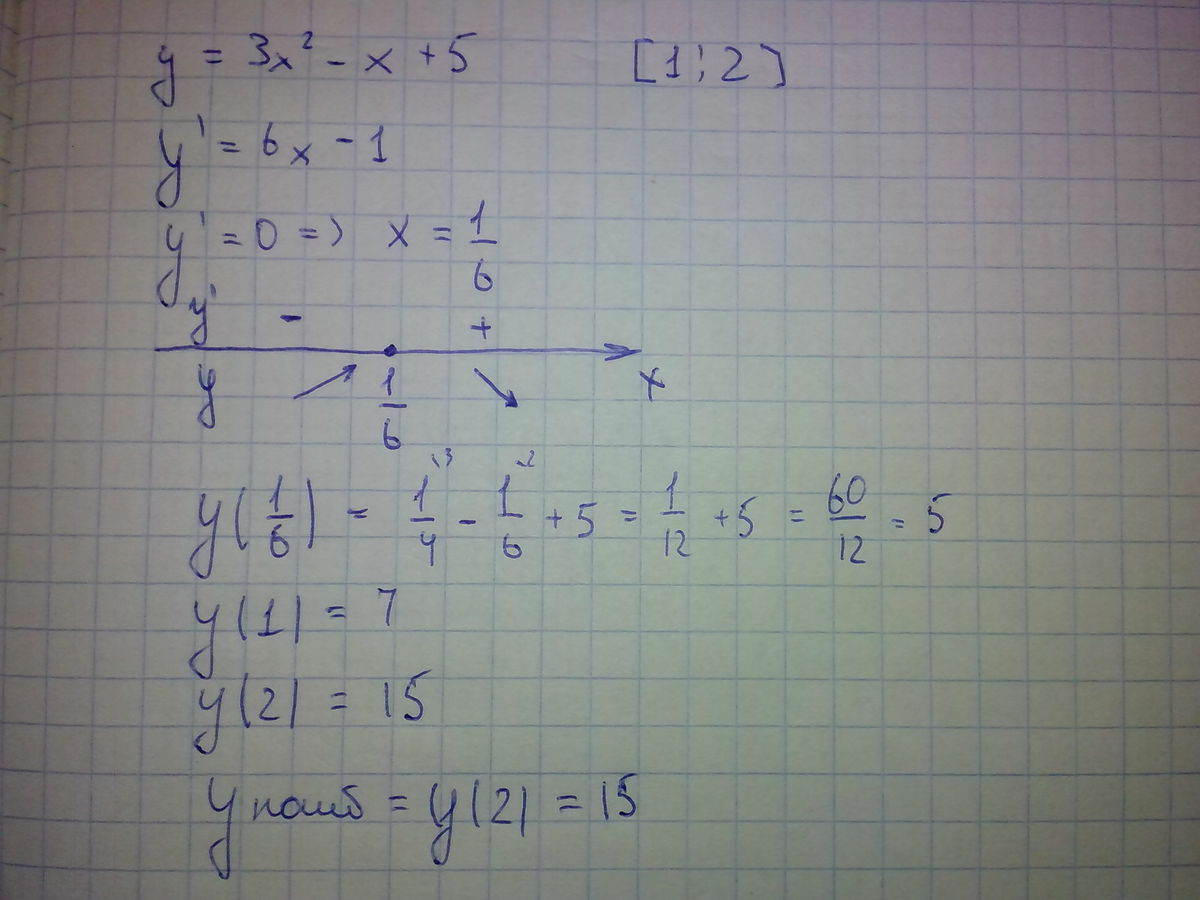 y = 3x² - x + 5 [1; 2]
y' = 6x - 1
y' = 0 => x = 1/6
y' - +
y 1/6 x
y(1/6) = 1/4 \3 - 1/6 \2 + 5 = 1/12 + 5 = 60/12 = 5
y(1) = 7
y(2) = 15
y наиб = y(2) = 15